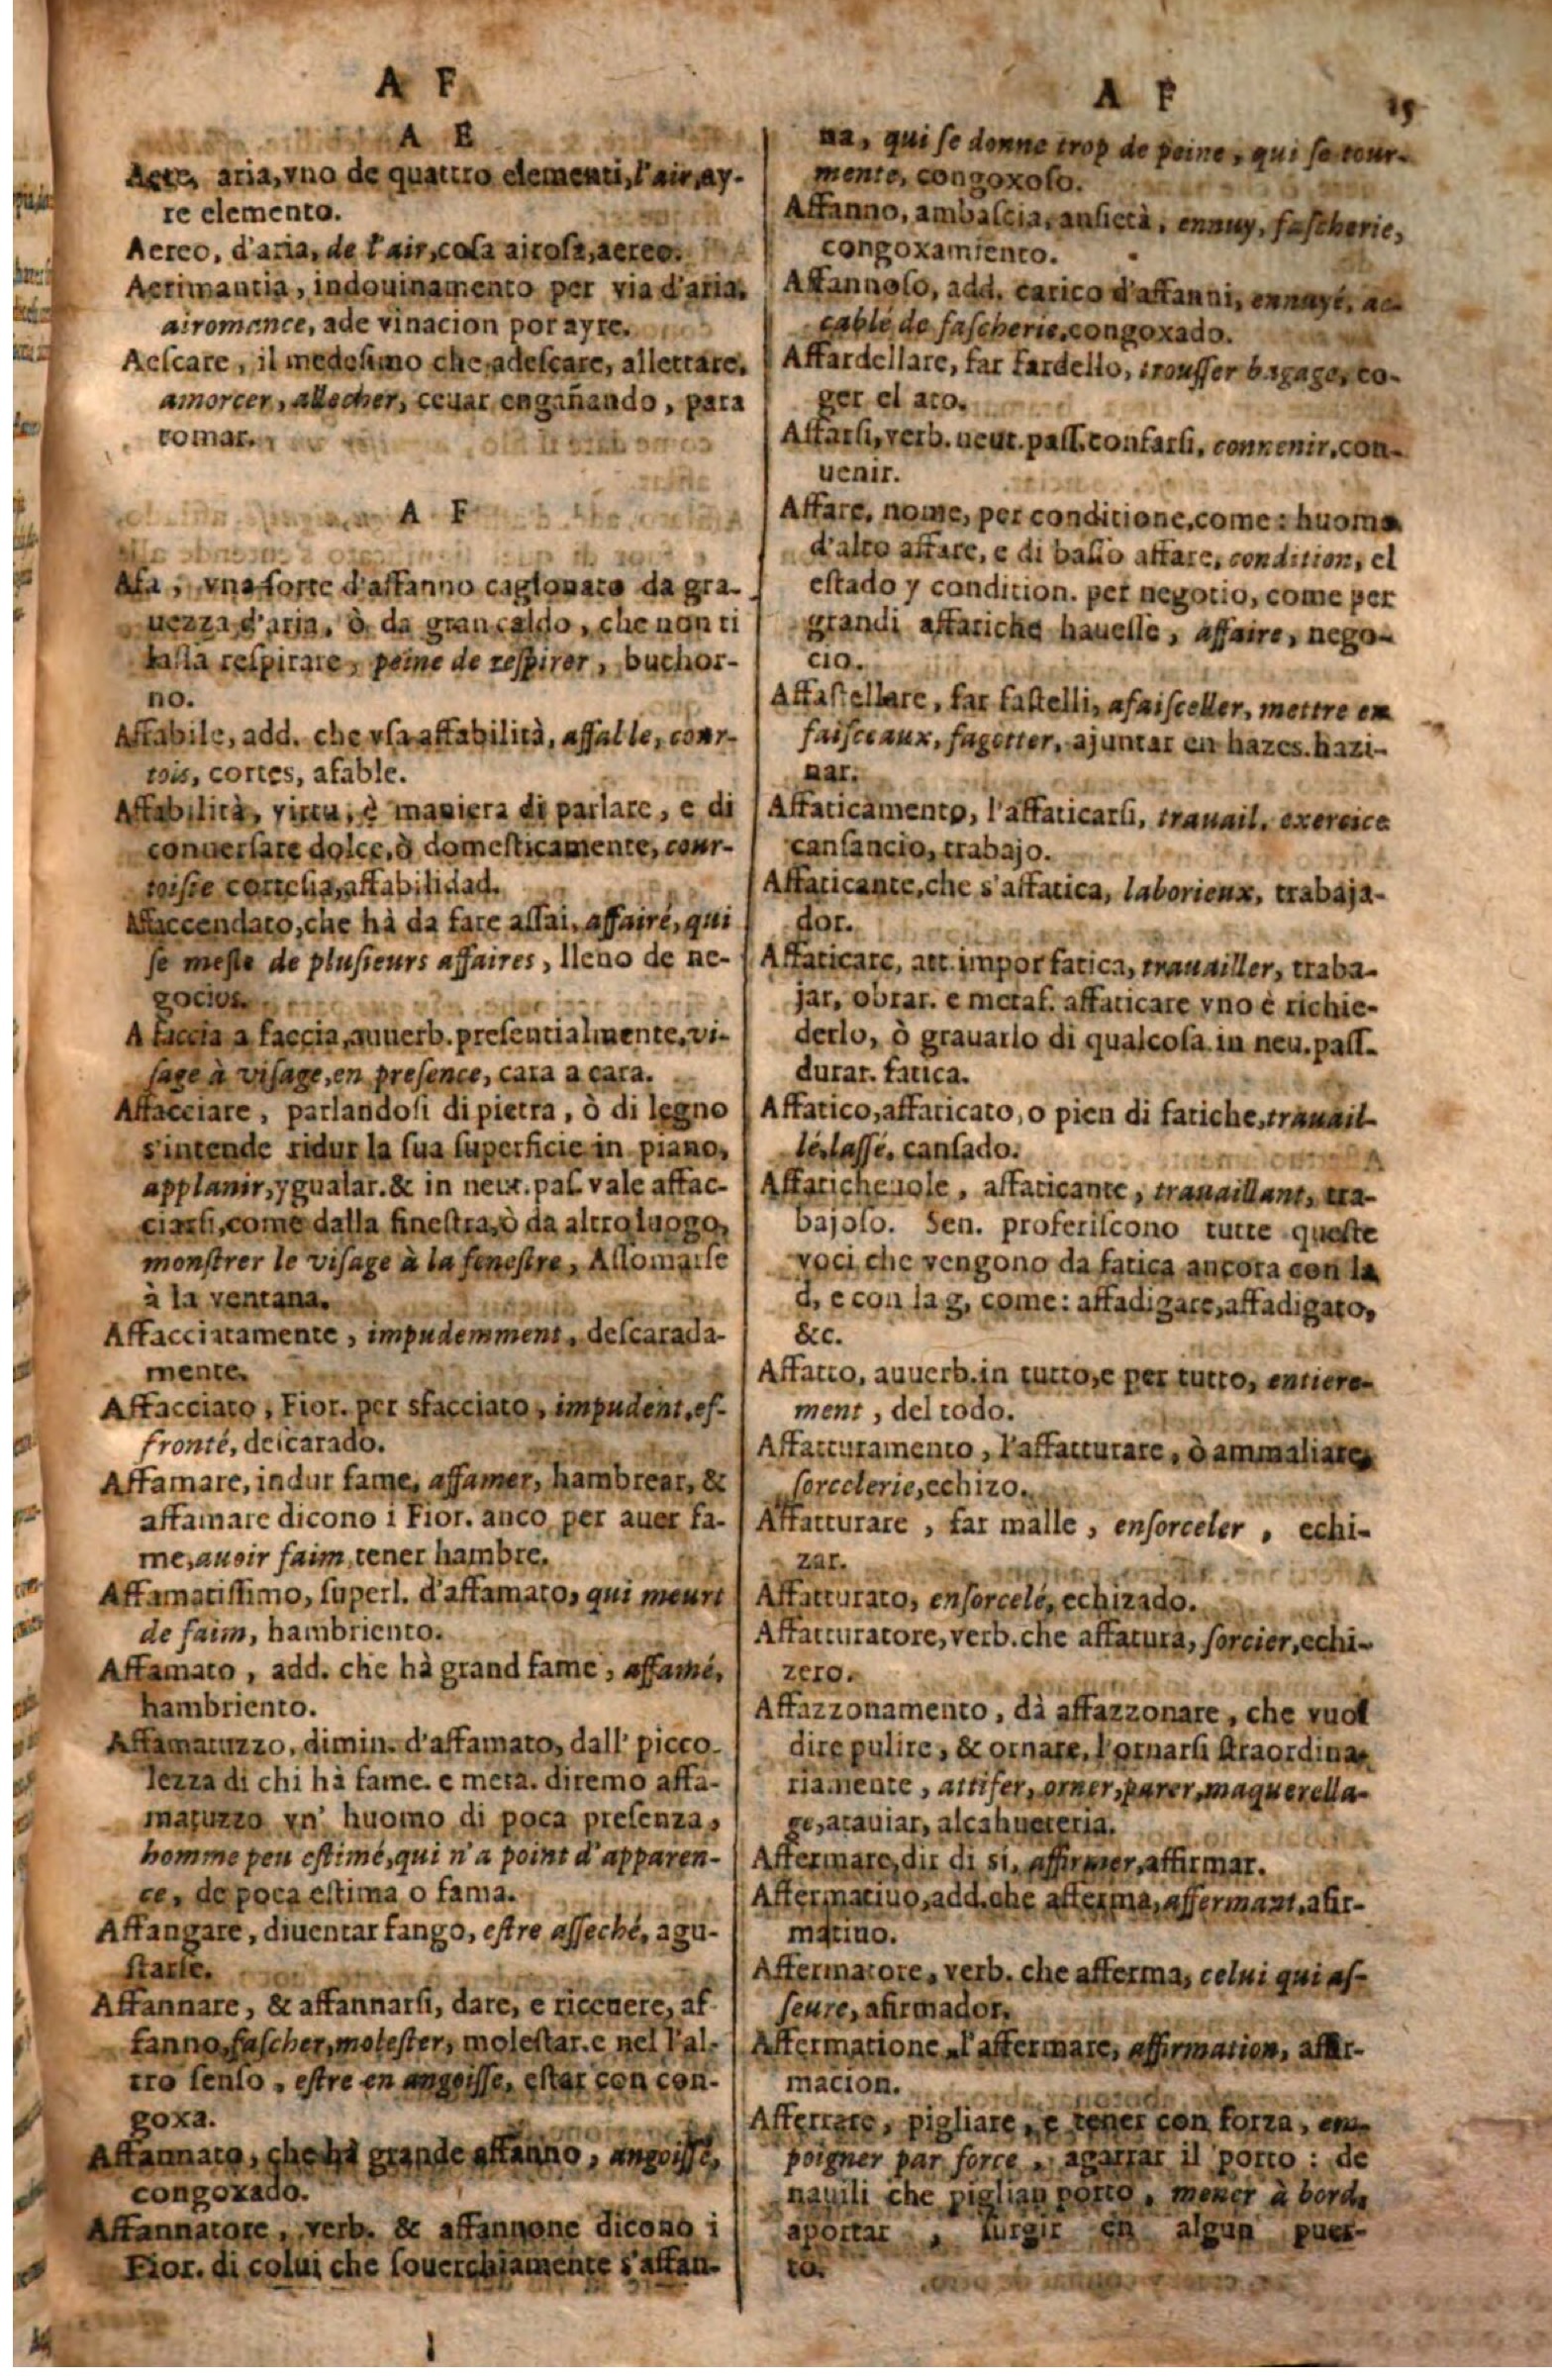 A F
A E
Aere, aria, vno de quattro elementi, l'air, ay-
re elemento.
Aereo, d'aria, de l'air, cosa airosa, aereo.
Aerimantia, indouinamento per via d'aria,
airomance, ade vinacion por ayre.
Aeſcare, il medeſimo che adeſcare, allettare,
amorcer, allecher, ceuar engañando, para
tomar.
A F
Afa, vna ſorte d'affanno cagionato da gra-
uezza d'aria, ò da gran caldo, che non ti
laſſa reſpirare, peine de reſpirer, buchor-
no.
Affabile, add. che vſa affabilità, affalle, cour-
tois, cortes, afable.
Affabilità, virtu, è maniera di parlare, e di
conuerſare dolce, ò domeſticamente, cour-
toiſie corteſia, affabilidad.
Affaccendato, che hà da fare aſſai, affairé, qui
ſe meſle de pluſieurs affaires, lleno de ne-
gocios.
A faccia a faccia, auuerb. preſentialmente, vi-
ſage à viſage, en preſence, cara a cara.
Affacciare, parlandoſi di pietra, ò di legno
s'intende ridur la ſua ſuperficie in piano,
applanir, ygualar. & in neut. paſ. vale affac-
ciarſi, come dalla fineſtra, ò da altro luogo,
monſtrer le viſage à la feneſtre, Aſſomarſe
à la ventana.
Affacciatamente, impudemment, deſcarada-
mente.
Affacciato, Fior. per sfacciato, impudent, ef-
fronté, deſcarado.
Affamare, indur fame, affamer, hambrear, &
affamare dicono i Fior. anco per auer fa-
me, auoir faim, tener hambre.
Affamatiſſimo, ſuperl. d'affamato, qui meurt
de faim, hambriento.
Affamato, add. che hà grand fame, affamé,
hambriento.
Affamatuzzo, dimin. d'affamato, dall' picco-
lezza di chi hà fame. e meta. diremo affa-
matuzzo vn' huomo di poca preſenza,
homme peu eſtimé, qui n'a point d'apparen-
ce, de poca eſtima o fama.
Affangare, diuentar fango, eſtre aſſeché, agu-
ſtarſe.
Affannare, & affannarſi, dare, e riceuere, af-
fanno, faſcher, moleſter, moleſtar. e nel l'al-
tro ſenſo, eſtre en angoiſſe, eſtar con con-
goxa.
Affannato, che hà grande affanno, angoiſſé,
congoxado.
Affannatore, verb. & affannone dicono i
Fior. di colui che ſouerchiamente s'affan-
A F 15
na, qui ſe donne trop de peine, qui ſe tour-
mente, congoxoſo.
Affanno, ambaſcia, anſietà, ennuy, faſcherie,
congoxamiento.
Affannoſo, add. carico d'affanni, ennuyé, ac-
cablé de faſcherie, congoxado.
Affardellare, far fardello, trouſſer bagage, co-
ger el ato.
Affarſi, verb. neut. paſſ. confarſi, connenir, con-
uenir.
Affare, nome, per conditione, come: huomo
d'alto affare, e di baſſo affare, condition, el
eſtado y condition. per negotio, come per
grandi affariche haueſſe, affaire, nego-
cio.
Affaſtellare, far faſtelli, afaiſceller, mettre en
faiſceaux, fagotter, ajuntar en hazes. hazi-
nar.
Affaticamento, l'affaticarſi, trauail, exercice
canſancio, trabajo.
Affaticante, che s'affatica, laborieux, trabaja-
dor.
Affaticare, att. impor fatica, trauailler, traba-
jar, obrar. e metaf. affaticare vno è richie-
derlo, ò gravarlo di qualcoſa. in neu. paſſ.
durar. fatica.
Affatico, affaticato, o pien di fatiche, trauail-
lé, laſſé, canſado.
Affaticheuole, affaticante, trauaillant, tra-
bajoſo. Sen. proferiſcono tutte queſte
voci che vengono da fatica ancora con la
d, e con la g, come: affadigare, affadigato,
&c.
Affatto, auuerb. in tutto, e per tutto, entiere-
ment, del todo.
Affatturamento, l'affatturare, ò ammaliare,
ſorcelerie, echizo.
Affatturare, far malle, enſorceler, echi-
zar.
Affatturato, enſorcelé, echizado.
Affatturatore, verb. che affatura, ſorcier, echi-
zero.
Affazzonamento, dà affazzonare, che vuol
dire pulire, & ornare, l'ornarſi ſtraordina-
riamente, attifer, orner, parer, maquerella-
ge, atauiar, alcahueteria.
Affermare, dir di si, affirmer, affirmar.
Affermatiuo, add. che afferma, affermant, afir-
matiuo.
Affermatore, verb. che afferma, celui qui aſ-
ſeure, afirmador.
Affermatione, l'affermare, affirmation, affir-
macion.
Afferrare, pigliare, e tener con forza, em-
poigner par force, agarrar il porto: de
nauili che piglian porto, mener à bord,
aportar, ſurgir en algun puer-
to.